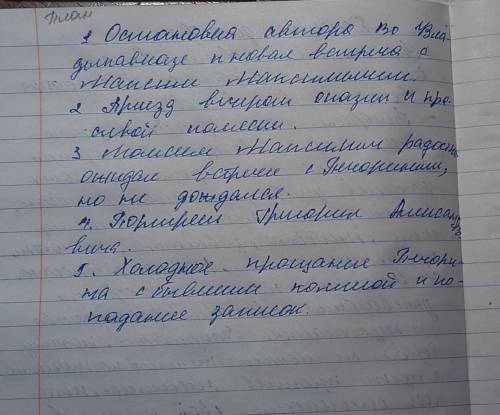 План
1 Остановка автора во Вла-
дикавказе и новая встреча с
Максим Максимычем.
2 Приезд вечером оказии и кра-
сивой коляски.
3 Максим Максимыч радостно
ожидал встречи с Печориным,
но не дождался.
4. Портрет Григория Александро
вича.
5. Холодное прощание Печори-
на с бывшим и по-
падание записок.